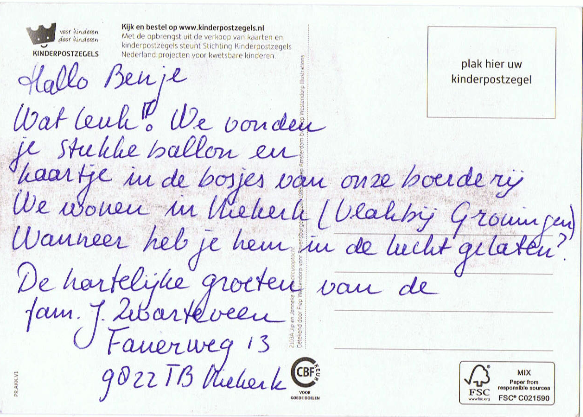 voor kinderen
door kinderen
KINDERPOSTZEGELS
Kijk en bestel op www.kinderpostzegels.nl
Met de opbrengst uit de verkoop van kaarten en
kinderpostzegels steunt Stichting Kinderpostzegels
Nederland projecten voor kwetsbare kinderen
plak hier uw
kinderpostzegel
Hallo Benje
Wat leuk! We vonden
je stukke ballon en
kaartje in de bosjes van onze boerderij
We wonen in Niekerk (Vlakbij Groningen)
Wanneer heb je hem in de lucht gelaten?
De hartelijke groeten van de
fam. J. Zwarteveen
Fanerweg 13
9822 TB Niekerk
CBF
KEUR
VOOR
GOEDE DOELEN
FSC
www.fsc.org
MIX
Paper from
responsible sources
FSC® C021590